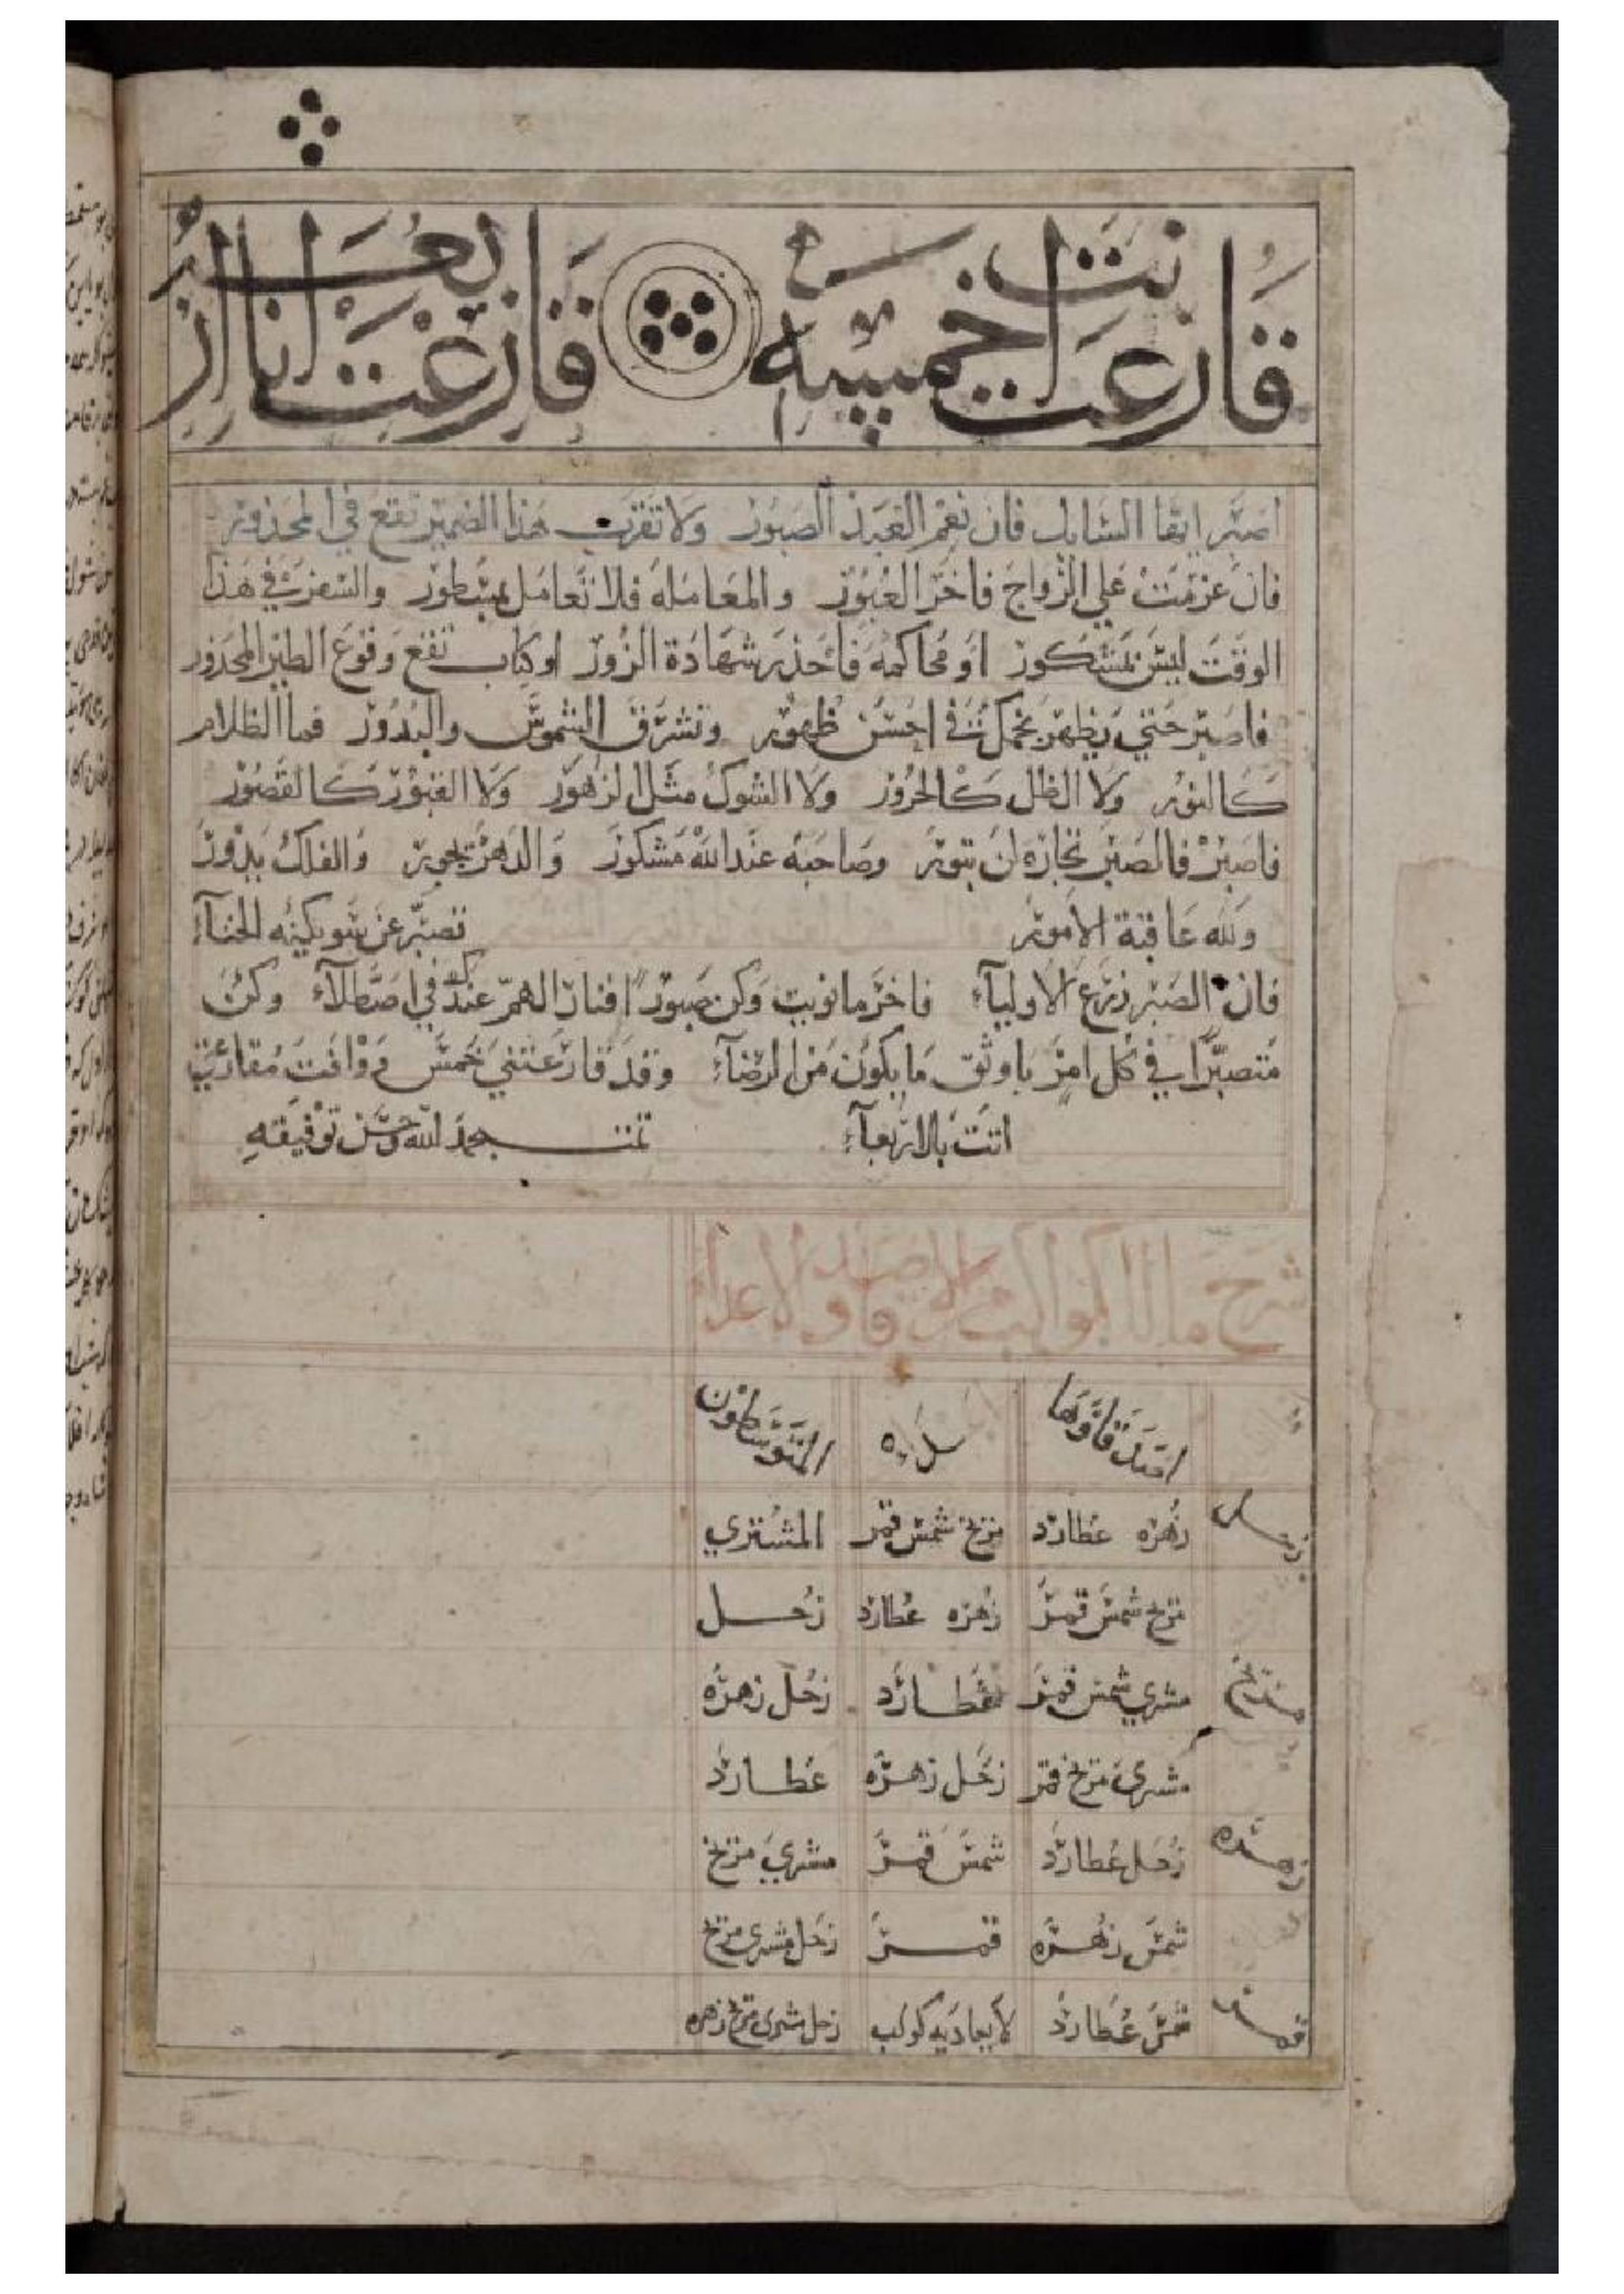 قارعت انت خمسه
قارعت انا اربعه
اصبر ايها السايل فان نعم العبد الصبور ولا تقرب هذا الضمير تقع في المحذور
فان عزمت علي الزواج فاخر العبور والمعامله فلا تعامل بمسطور والسفر في هذا
الوقت ليس بمشكور او محاكمه فاحذر شهادة الزور او كتاب تقع وقوع الطير المحذور
فاصبر حتي يظهر نجمك في احسن ظهور وتشرق الشموس والبدور فما الظلام
كالنور ولا الظل كالحرور ولا الشوك مثل الزهور ولا القبور كالقصور
فاصبر فالصبر تجارة لن تبور وصاحبه عند الله مشكور والدهر يجور والفلك يدور
ولله عاقبة الامور
تصبر عن
فان الصبر زرع الاوليآء فاخر ما نويت وكن صبورا فنار الهم عندك في اصطلآء وكن
متصبرا في كل امر باوثق ما يكون من الرضآء وقد قارعتني خمس ووافت مقارعتي
اتت بالاربعآء
تمت بحمد الله وحسن توفيقه
شرح ما للكواكب من الاصدقا والاعداء
اصدقاوها
المتوسطون
زحل
زهره عطارد
مريخ شمس قمر
المشتري
مريخ شمس قمر
زهره عطارد
زحل
مريخ
مشري شمس قمر
عطارد
زحل زهره
مشري مريخ قمر
زحل زهره
عطارد
زهره
زحل عطارد
شمس قمر
مشري مريخ
شمس زهره
قمر
زحل مشري مريخ
قمر
شمس عطارد
لا يعاديه كوكب
زحل مشري مريخ زهره